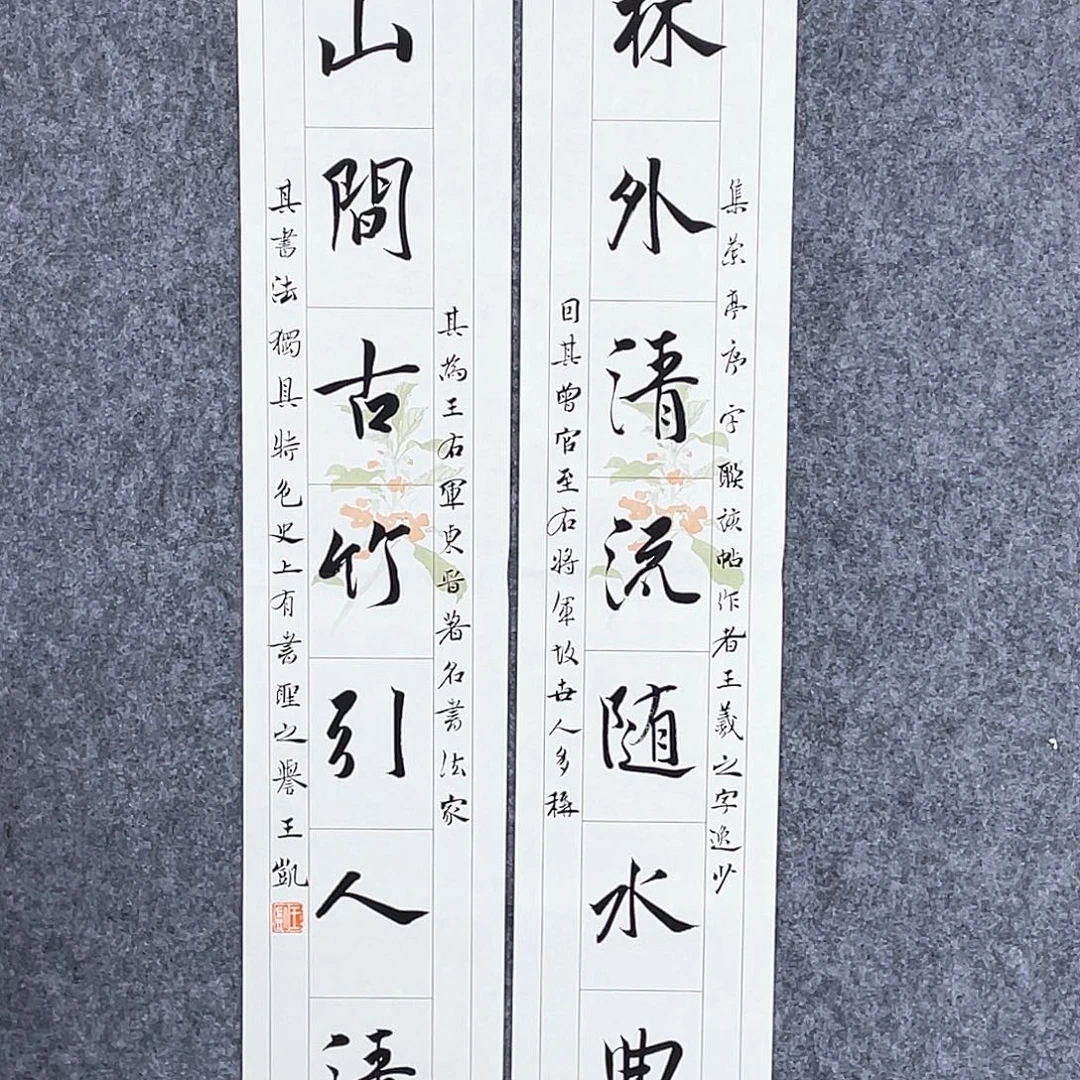 集蘭亭序字聯該帖作者王羲之字逸少
林外清流随水曲
因其曾官至右將軍故世人多稱
其為王右軍東晋著名書法家
山間古竹引人清
其書法獨具特色史上有書聖之譽王凱